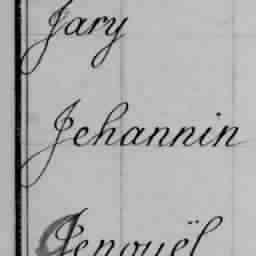 Jary
Jehannin
Jenouël